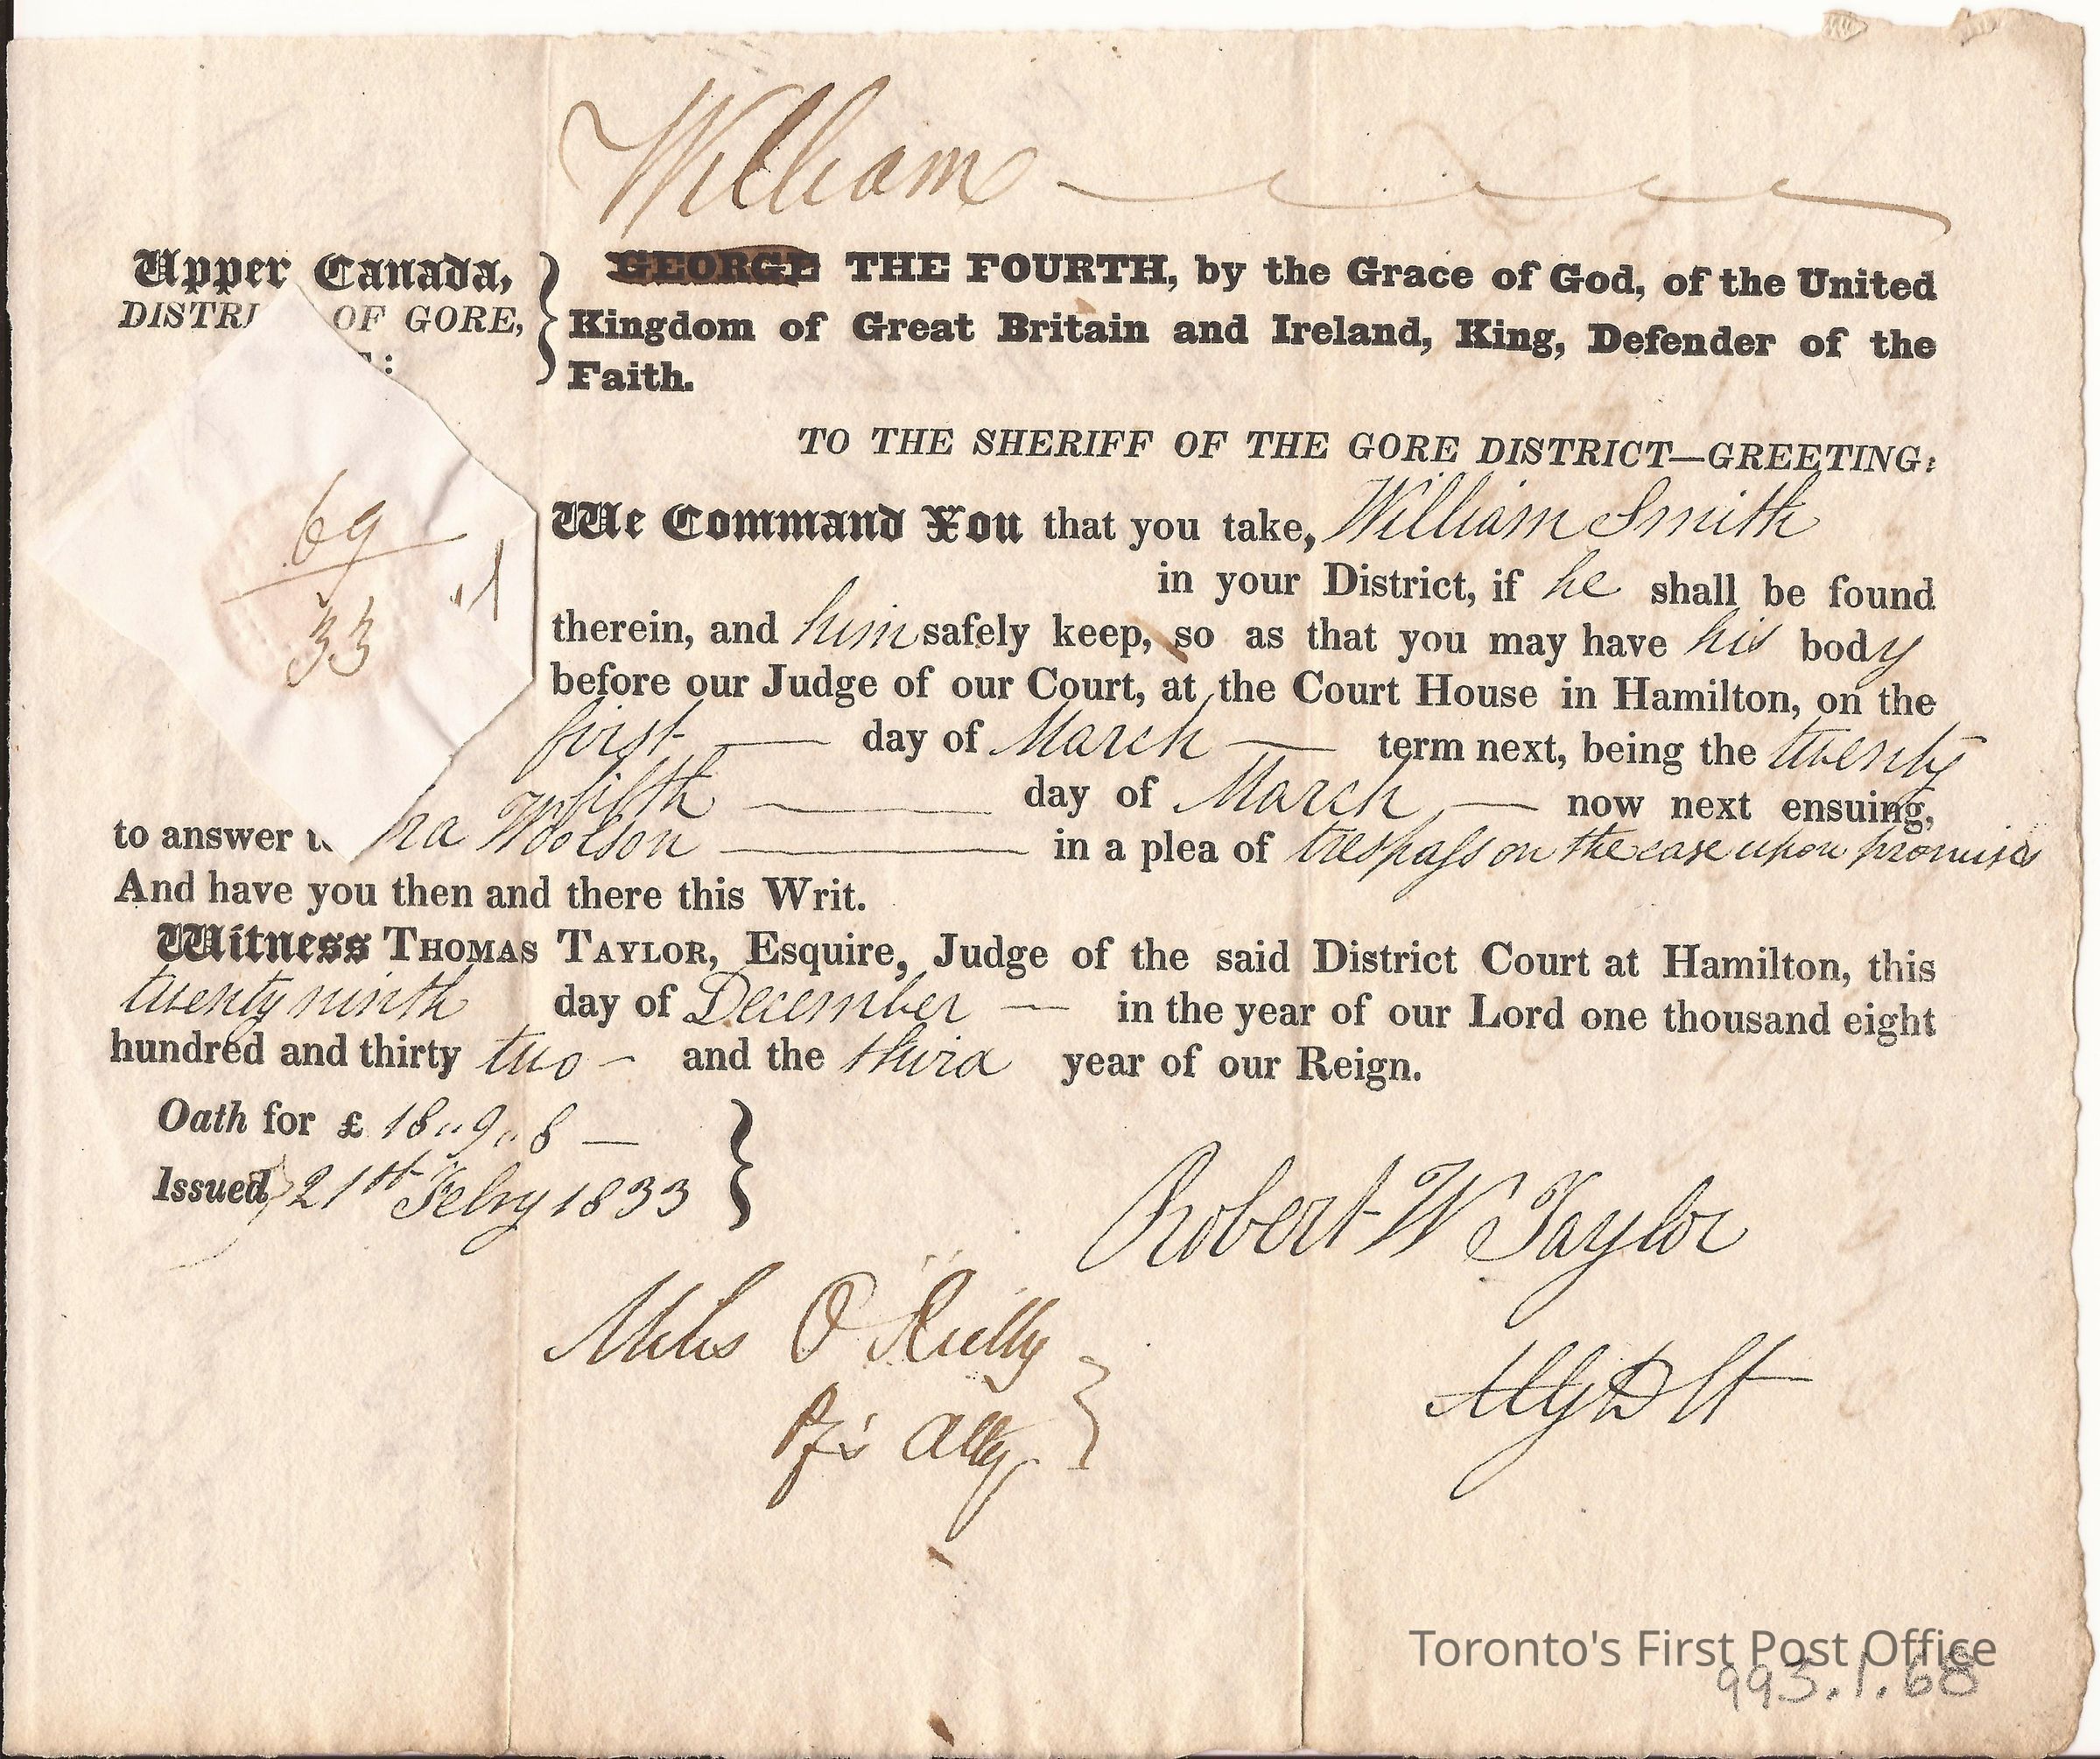 William
Upper Canada,
DISTRI OF GORE,
:
GEORGE THE FOURTH, by the Grace of God, of the United
Kingdom of Great Britain and Ireland, King, Defender of the
Faith.
TO THE SHERIFF OF THE GORE DISTRICT—GREETING:
We Command You that you take, William Smith
in your District, if he shall be found
therein, and him safely keep, so as that you may have his body
before our Judge of our Court, at the Court House in Hamilton, on the
first day of March term next, being the twenty
fifth day of March now next ensuing,
to answer ra Woolson in a plea of trespass on the case upon promises
And have you then and there this Writ.
Witness THOMAS TAYLOR, Esquire, Judge of the said District Court at Hamilton, this
twenty ninth day of December in the year of our Lord one thousand eight
hundred and thirty two and the third year of our Reign.
Oath for £ 18,,9,,8
Issued 21st Febry 1833
69
33
Robert W Taylor
Miles O'Reilly
Atty
Toronto's First Post Office
993.1.68